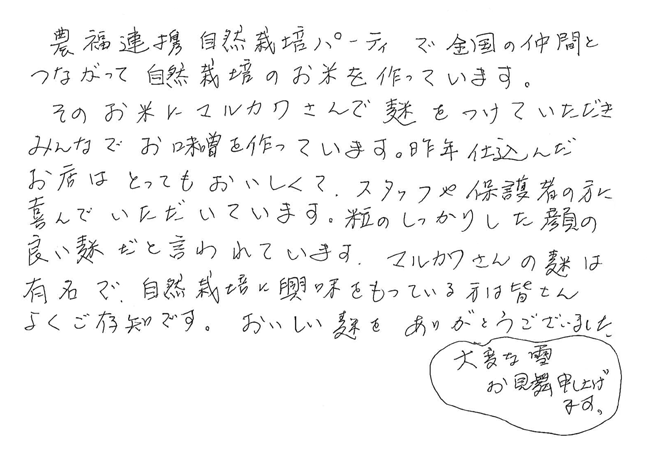 農福連携 自然栽培パーティ で 全国の仲間と
つながって 自然栽培 の お米を 作っています。
その お米に マルカワさんで 麹 を つけて いただき
みんなで お味噌を作っています。昨年 仕込んだ
お店は とっても おいしくて、スタッフや 保護者の方に
喜んで いただいています。粒のしっかりした 顔の
良い麹 だと言われています。マルカワさんの麹は
有名で、自然栽培に興味をもっている方は皆さん
よくご存知です。 おいしい 麹を ありがとうございました
大変な 雪
お見舞申し上げ
ます。